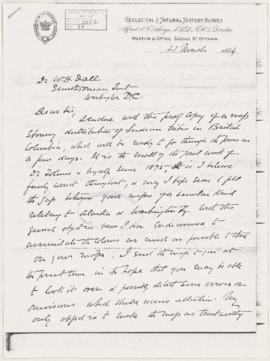 GEOLOGICAL & NATURAL HISTORY SURVEY
Alfred R. C. Selwyn, L.L.D., F.R.S., Director
MUSEUM & OFFICE, SUSSEX ST. OTTAWA.
21 March 1884
Dr. W. H. Dall
Smithsonian Inst
Washington D.C.
Dear Sir,
I enclose with this proof copy of a map
showing distribution of Indian tribes in British
Columbia, which will be ready to go through the press in
a few days. It is the result of the past work of
Dr Tolmie & myself since 1875. It is I believe
fairly correct throughout, & may I hope serve to fill
the gap between your maps of a similar kind
relating to Alaska & Washington Ty. With this
general object in view I have endeavored to
assimilate the colours as much as possible to those
on your maps. I send the map to you at
the present time in the hope that you may be able
to look it over & possibly detect some errors or
omissions which should receive attention. My
only object is to make the map as trustworthy